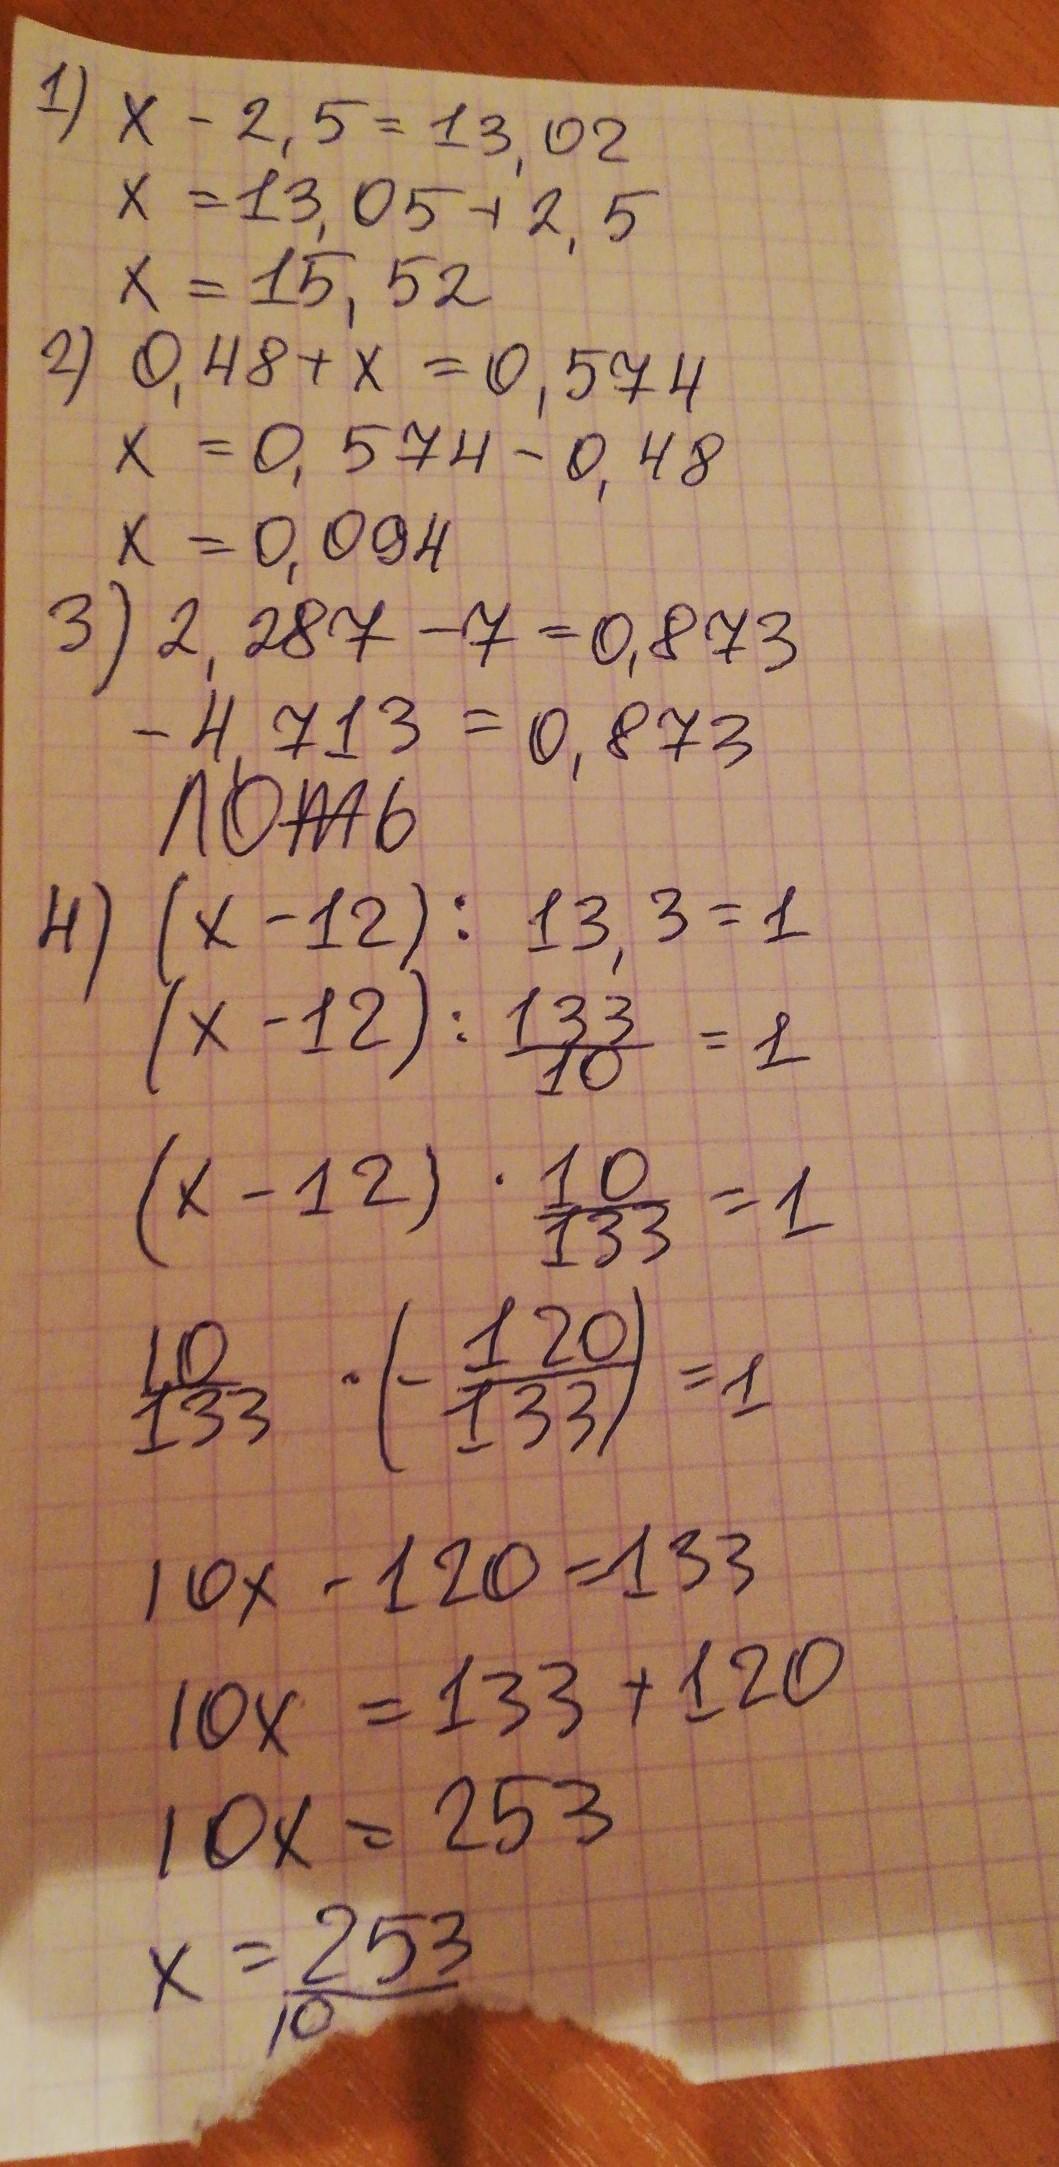 1) x - 2,5 = 13,02
x = 13,05 + 2,5
x = 15,52
2) 0,48 + x = 0,574
x = 0,574 - 0,48
x = 0,094
3) 2,287 - 7 = 0,873
- 4,713 = 0,873
ЛОЖЬ
4) (x - 12) : 13,3 = 1
(x - 12) : 133/10 = 1
(x - 12) · 10/133 = 1
10/133 · (- 120/133) = 1
10x - 120 = 133
10x = 133 + 120
10x = 253
x = 253/10